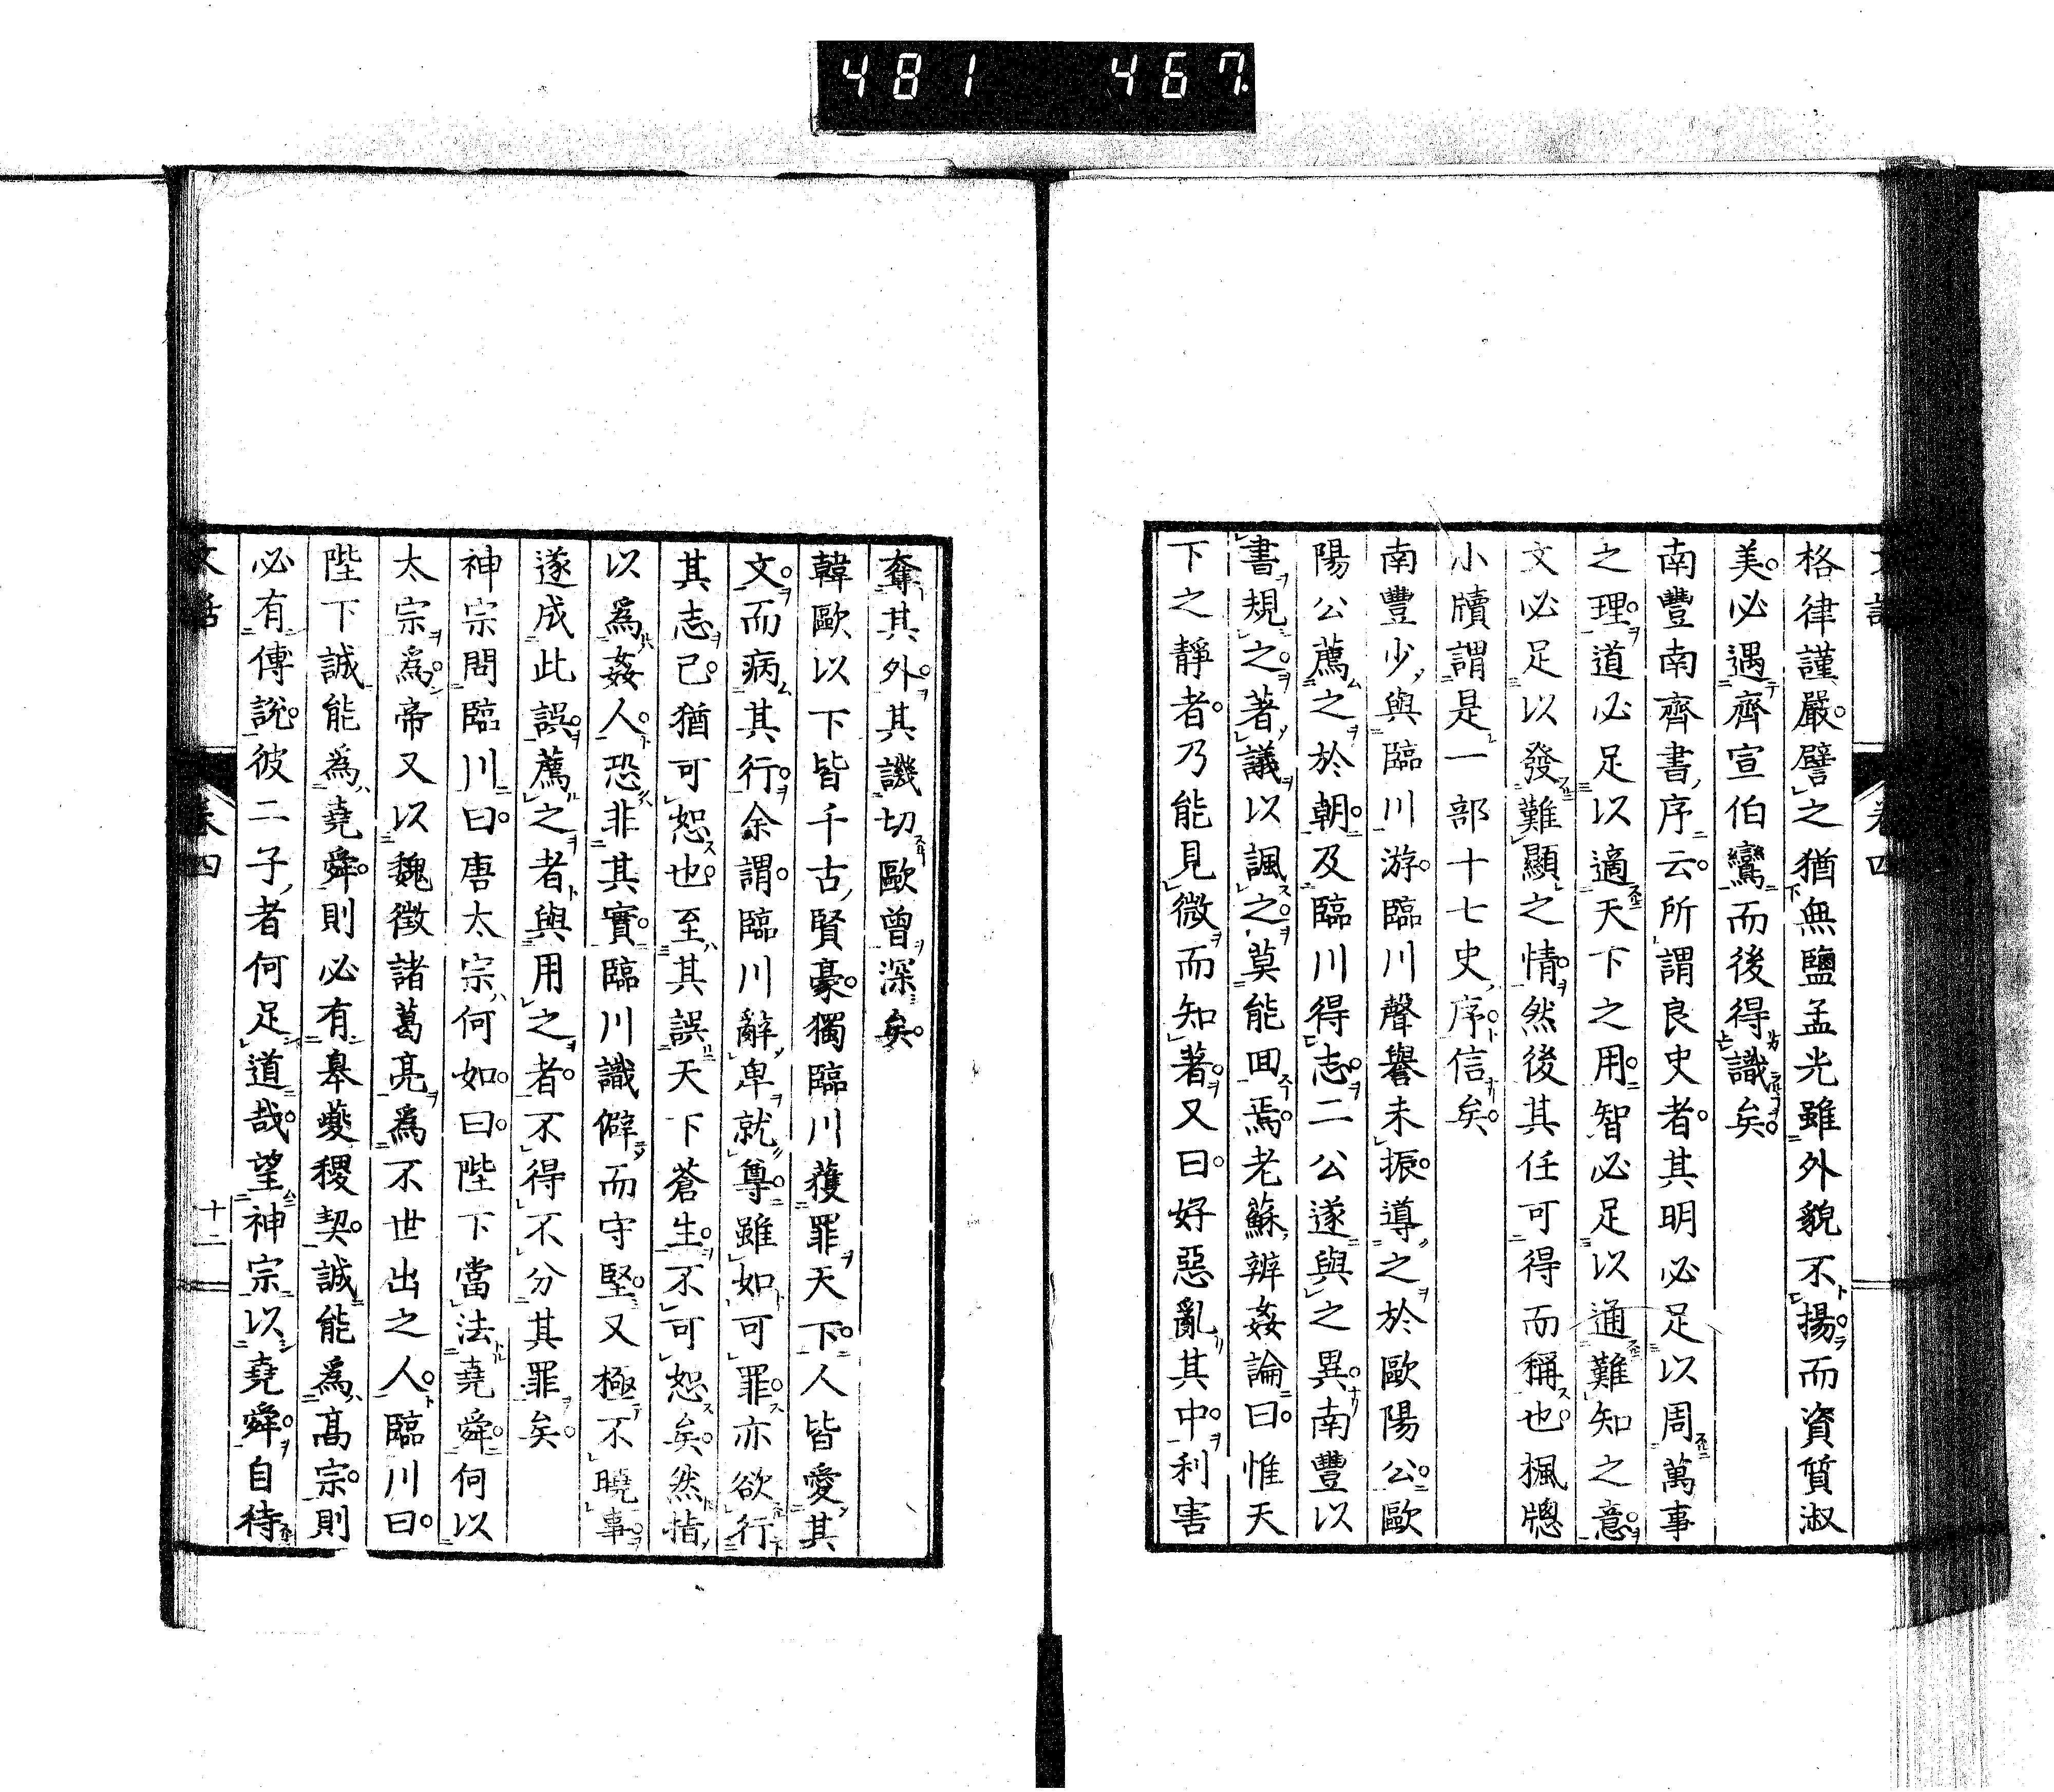 481 467
格律謹嚴。譬之猶無鹽孟光雖外貌不揚。而資質淑
美。必遇齊宣伯鸞而後得識矣。
南豐南齊書序云。所謂良史者。其明必足以周萬事
之理。道必足以適天下之用。智必足以通難知之意。
文必足以發難顯之情。然後其任可得而稱也。楓牕
小牘謂是一部十七史序。信矣。
南豐少與臨川游。臨川聲譽未振。導之於歐陽公。歐
陽公薦之於朝。及臨川得志。二公遂與之異。南豐以
書規之。著議以諷之。莫能回焉。老蘇辨姦論曰。惟天
下之靜者。乃能見微而知著。又曰。好惡亂其中。利害
奪其外。其譏切歐曾深矣。
韓歐以下皆千古賢豪。獨臨川獲罪天下。人皆愛其
文。而病其行。余謂。臨川辭卑就尊。雖如可罪。亦欲行
其志已。猶可恕也。至其誤天下蒼生。不可恕矣。然指
以爲姦人。恐非其實。臨川識僻而守堅。又極不曉事。
遂成此誤。薦之者與用之者。不得不分其罪矣。
神宗問臨川曰。唐太宗何如。曰。陛下當法堯舜。何以
太宗爲。帝又以魏徵諸葛亮爲不世出之人。臨川曰。
陛下誠能爲堯舜。則必有皋夔稷契。誠能爲高宗。則
必有傅說。彼二子者何足道哉。望神宗以堯舜。自待
文話 卷四 十二